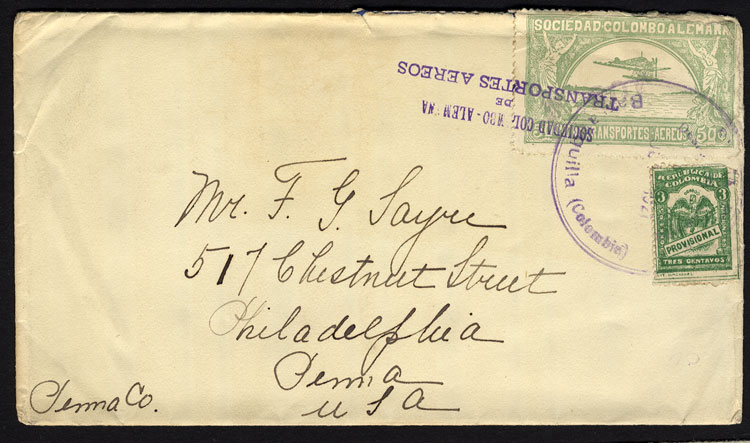 SOCIEDAD-COLOMBO ALEMANA
TRANSPORTES-AEREOS
50¢
SOCIEDAD COL MBO-ALEM NA
DE
TRANSPORTES AEREOS
quilla (Colombia)
REPUBLICA DE
COLOMBIA
3 3
PROVISIONAL
TRES CENTAVOS
Mr. F. G. Sayre
517 Chestnut Street
Philadelphia
Penna
USA
Penna Co.